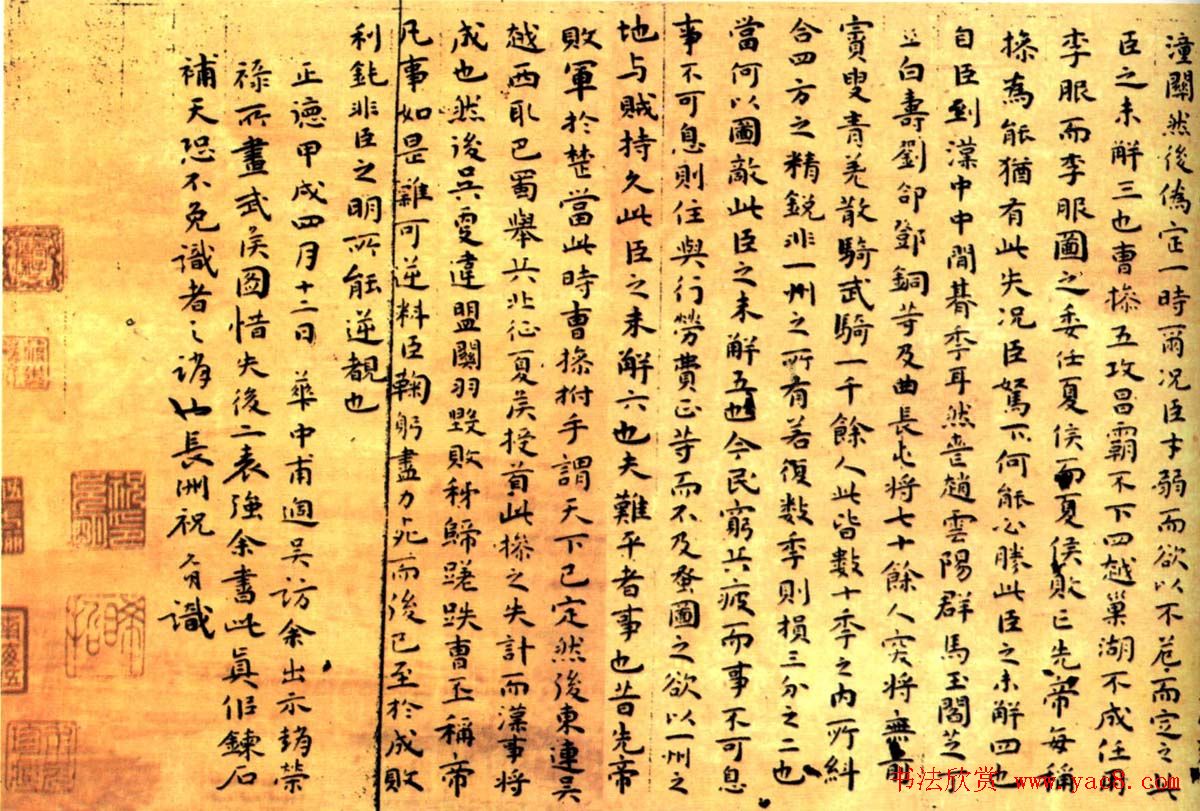 潼關然後偽定一時爾況臣才弱而欲以不危而定之此
臣之未解三也曹操五攻昌霸不下四越巢湖不成任用
李服而李服圖之委任夏侯而夏侯敗亡先帝每稱
操為能猶有此失況臣駑下何能必勝此臣之未解四也
自臣到漢中中間朞季耳然喪趙雲陽群馬玉閻芝丁
立白壽劉郃鄧銅等及曲長屯將七十餘人突將無前
賨叟青羌散騎武騎一千餘人此皆數十季之內所糾
合四方之精銳非一州之所有若復數季則損三分之二也
當何以圖敵此臣之未解五也今民窮兵疲而事不可息
事不可息則住與行勞費正等而不及蚤圖之欲以一州之
地与賊持久此臣之未解六也夫難平者事也昔先帝
敗軍於楚當此時曹操拊手謂天下已定然後東連吳
越西取巴蜀舉兵北征夏侯授首此操之失計而漢事將
成也然後吳更違盟關羽毀敗秭歸蹉跌曹丕稱帝
凡事如是難可逆料臣鞠躬盡力死而後已至於成敗
利鈍非臣之明所能逆覩也
正德甲戌四月十二日 華中甫過吳訪余出示趙榮
祿所畫武侯圖惜失後二表強余書此真侶鍊石
補天恐不免識者之誚也長洲祝允明識
书法欣赏 www.yac8.com